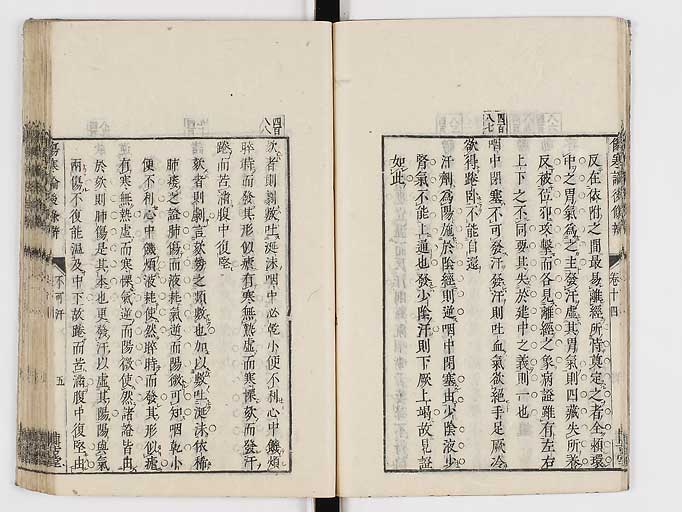 傷寒論後條辨 卷十四
反在依附之間最易離經所恃奠定之者全賴環
中之胃氣為之主發汗虛其胃氣則四藏失所養
反被位犯攻擊而各見離經之象病證雖有左右
上下之不同要其失於建中之義則一也
四百八七
咽中閉塞不可發汗發汗則吐血氣欲絕手足厥冷
欲得踡臥不能自溫
汗劑為陽施於陰經則逆咽中閉塞由少陰液少
腎氣不能上通也發少陰汗則下厥上竭故見證
如此
四百八八
欬者則劇數吐涎沫咽中必乾小便不利心中饑煩
晬時而發其形似瘧有寒無熱虛而寒慄欬而發汗
踡而苦滿腹中復堅
欬者則劇言欬勢之頻數也加以數吐涎沫依稀
肺痿之證肺傷而液耗氣逆而陽微可知咽乾小
便不利心中饑煩液耗使然晬時而發其形似瘧
有寒無熱虛而寒慄氣逆而陽微使然諸證皆由
於欬則肺傷是其本也更發汗以虛其陽陽與氣
兩傷不復能溫及中下故踡而苦滿腹中復堅由
傷寒論後條辨 不可汗 五